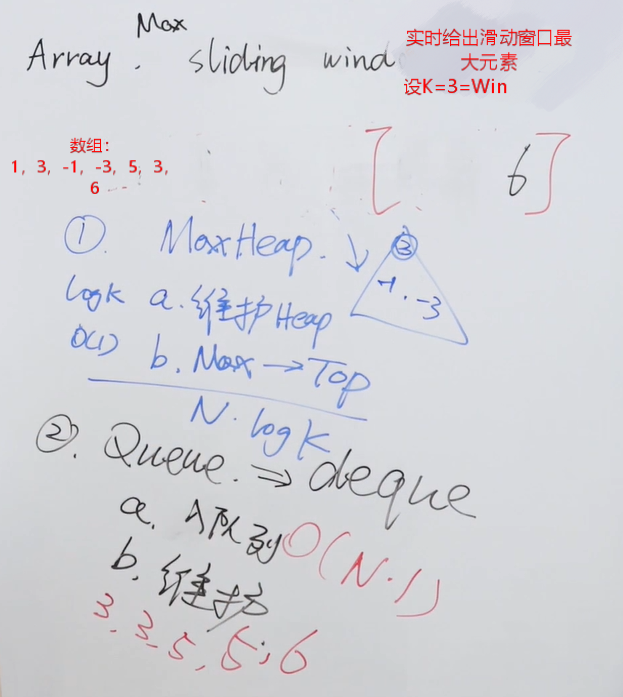 Max
Array. sliding wind
实时给出滑动窗口最
大元素
设K=3=Win
数组：
1，3，-1，-3，5，3，
6
[ 6]
① MaxHeap.
3
-1, -3
logK a.维护Heap
O(1) b.Max→Top
N·logK
②. Queue. ⇒ deque
a. 入队列 O(N·1)
b. 维护
3,3,5,5,6